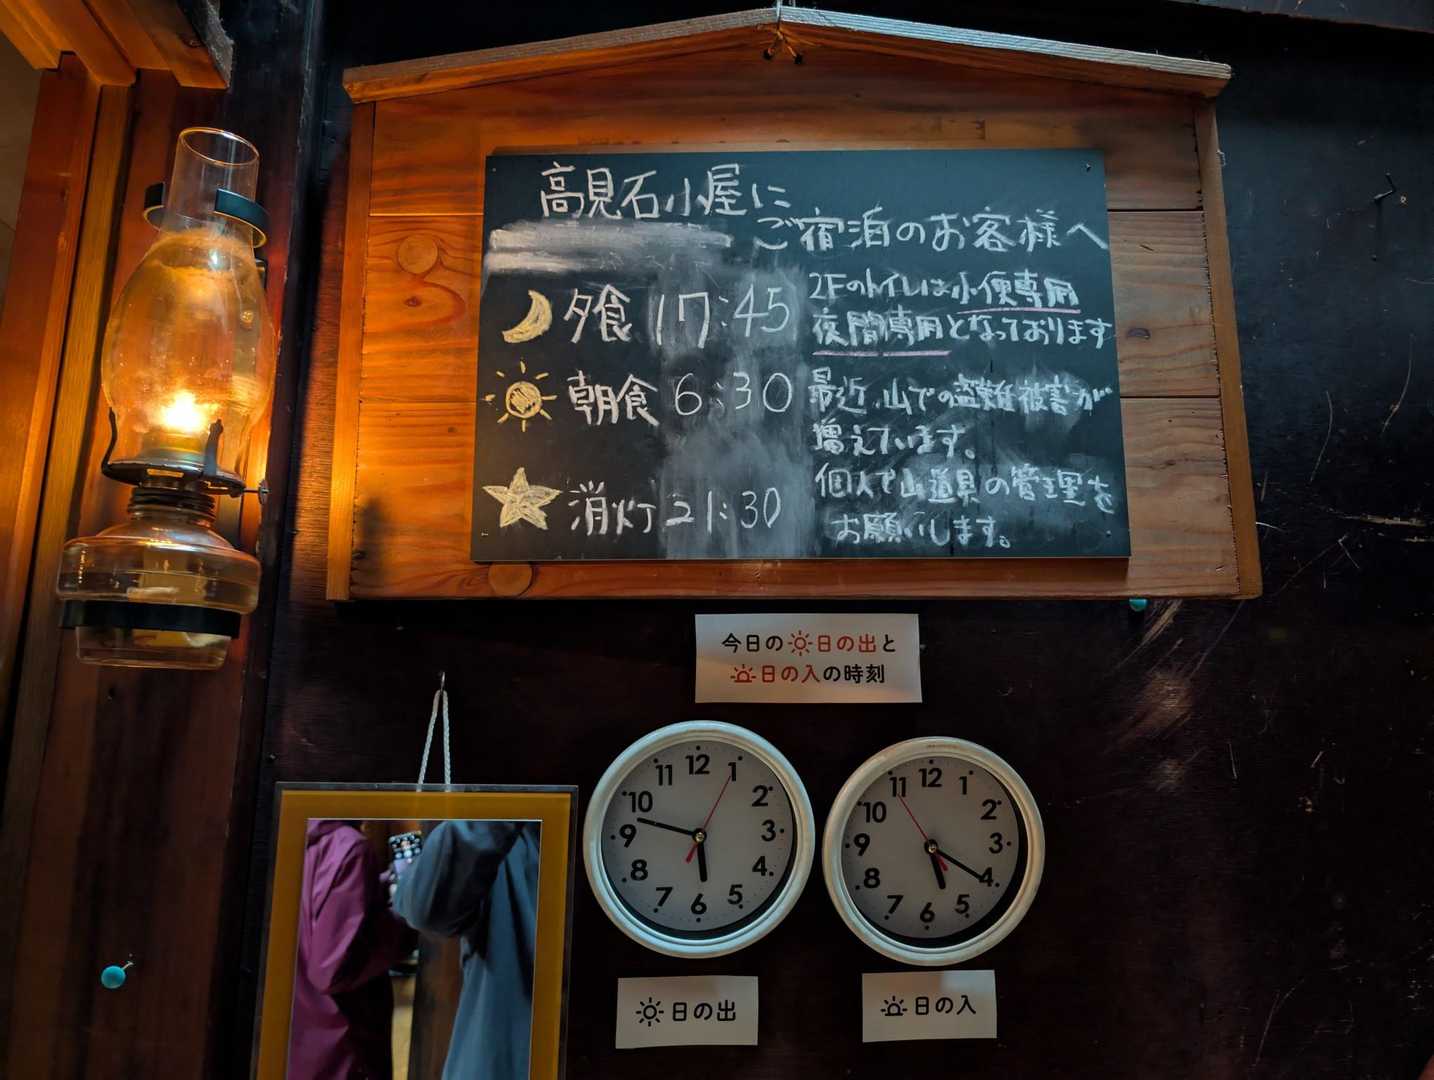 高見石小屋に
ご宿泊のお客様へ
夕食 17:45
朝食 6:30
消灯 21:30
2Fのトイレは小便専用
夜間専用となっております
最近、山での盗難被害が
増えています。
個人で山道具の管理を
お願いします。
今日の日の出と
日の入の時刻
12
1
2
3
4
5
6
7
8
9
10
11
12
1
2
3
4
5
6
7
8
9
10
11
日の出
日の入